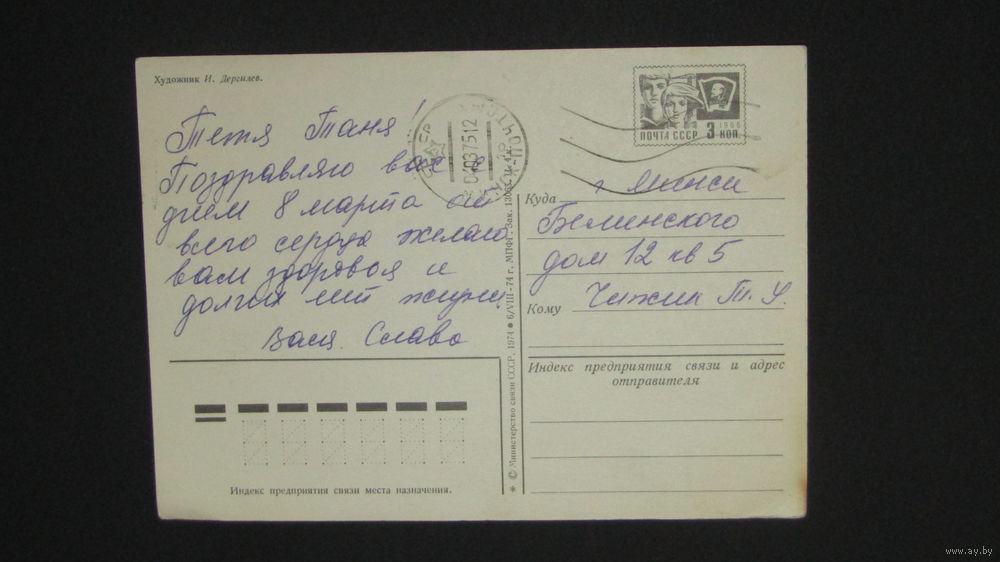 Художник И. Дергилев.
Тетя Таня!
Поздравляю вас с
днем 8 марта от
всего сердца желаю
вам здоровья и
долгих лет жизни
Валя. Слава
04037512
1966
ПОЧТА СССР 3 КОП
Куда г Минск
Белинского
дом 12 кв 5
Кому Чижик Т. У.
Индекс предприятия связи и адрес
отправителя
Индекс предприятия связи места назначения.
© Министерство связи СССР, 1974 ● 6/VIII-74 г. МПФГ. Зак.
www.ay.by